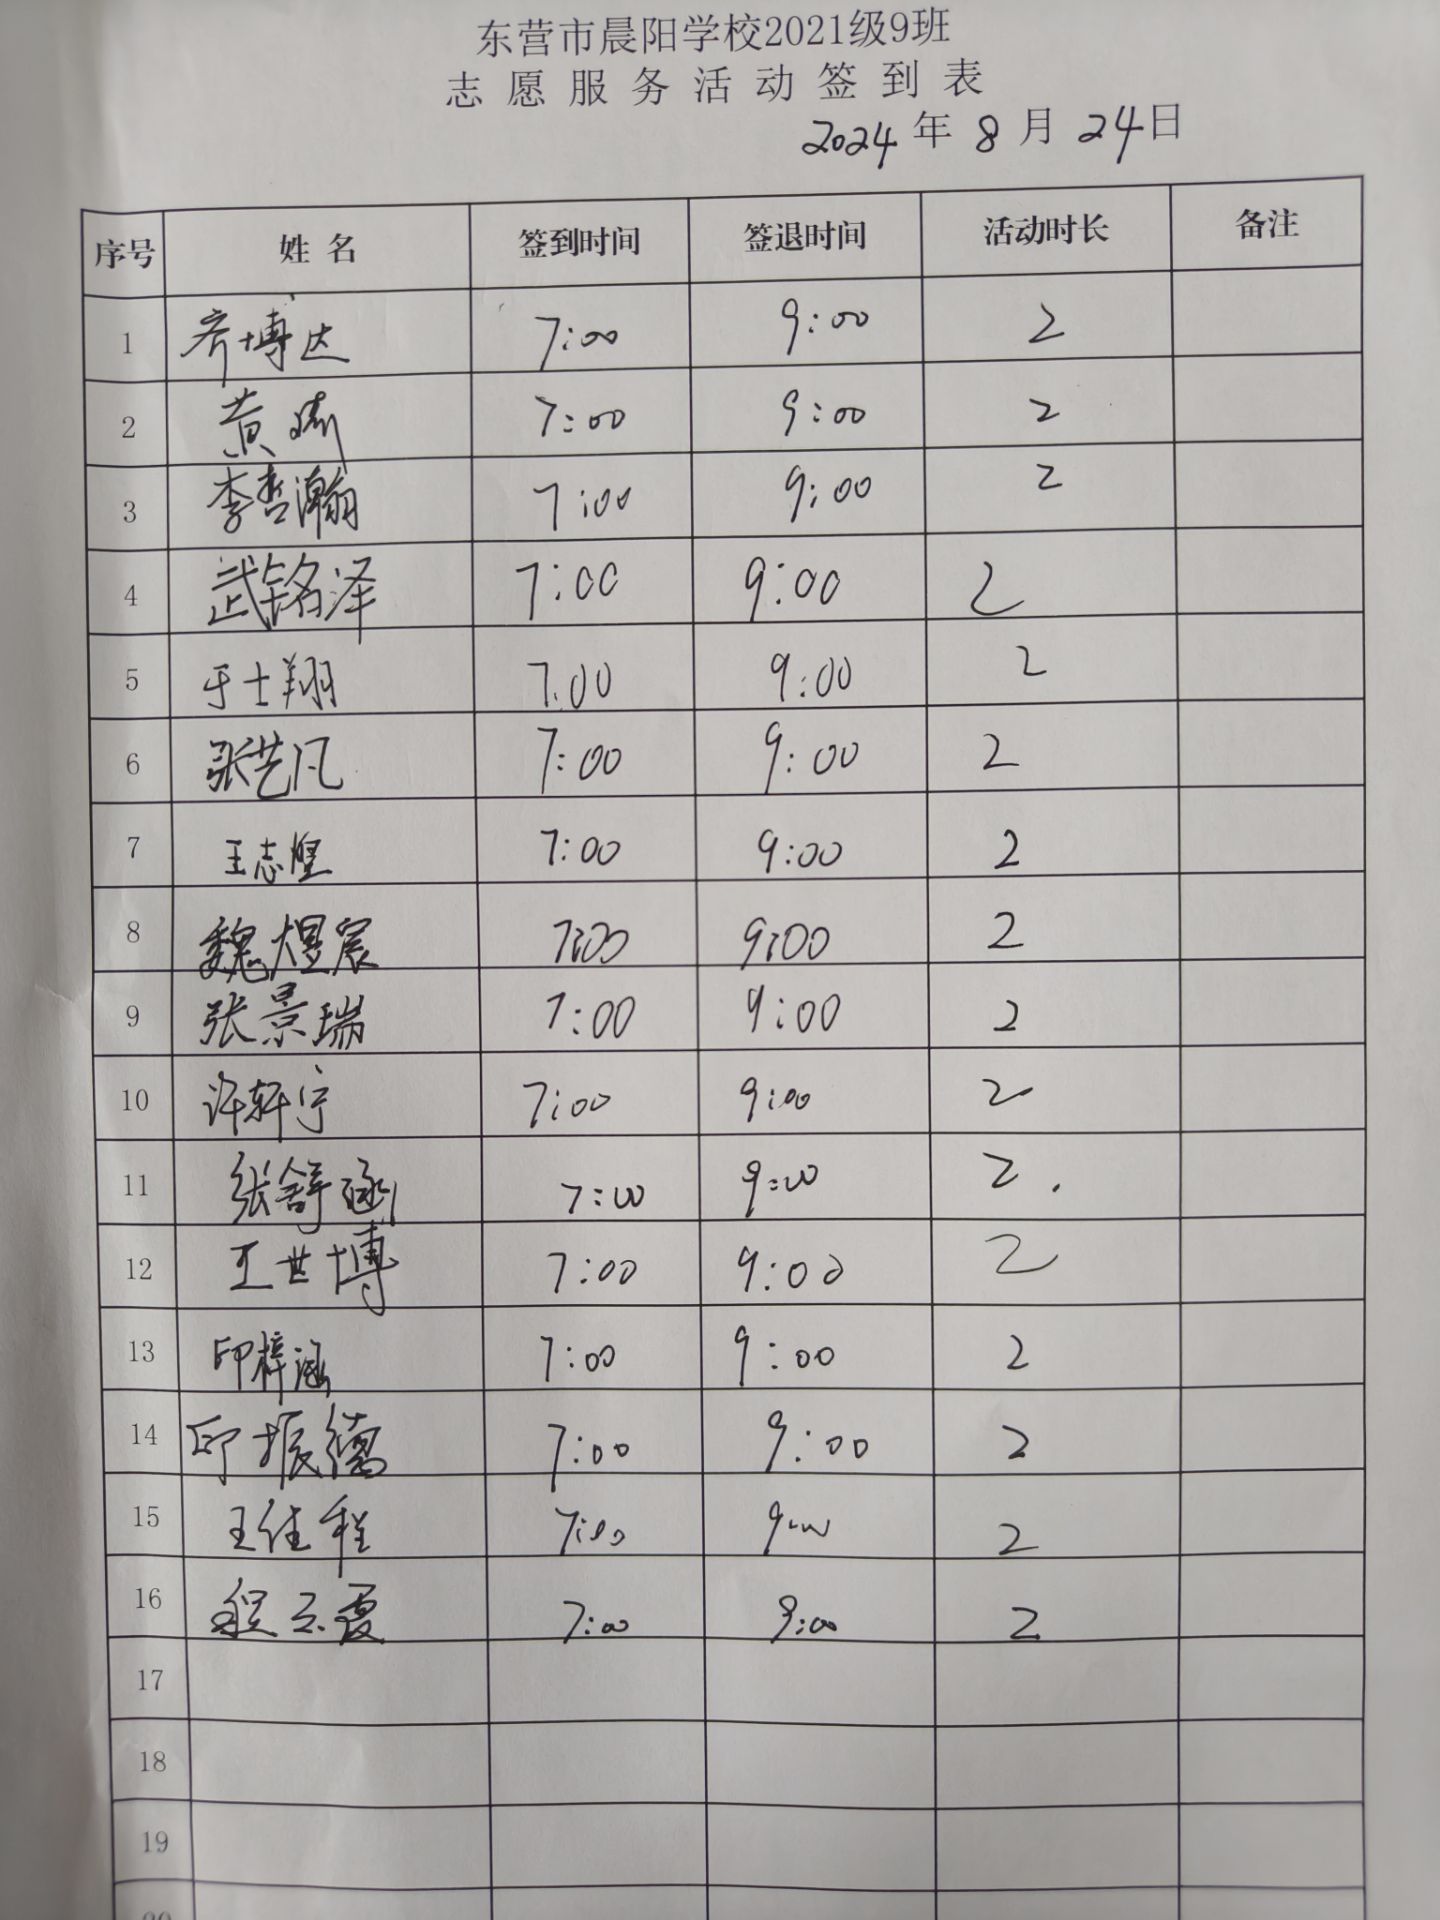 东营市晨阳学校2021级9班
志愿服务活动签到表
2024年8月24日
序号 姓名 签到时间 签退时间 活动时长 备注
1 齐博达 7:00 9:00 2
2 黄 7:00 9:00 2
3 李哲瀚 7:00 9:00 2
4 武铭泽 7:00 9:00 2
5 于士翔 7:00 9:00 2
6 张艺凡 7:00 9:00 2
7 王志煜 7:00 9:00 2
8 魏煜宸 7:00 9:00 2
9 张景瑞 7:00 9:00 2
10 许轩宁 7:00 9:00 2
11 张舒涵 7:00 9:00 2
12 王世博 7:00 9:00 2
13 印梓涵 7:00 9:00 2
14 印振德 7:00 9:00 2
15 王佳程 7:00 9:00 2
16 程云霞 7:00 9:00 2
17
18
19
20